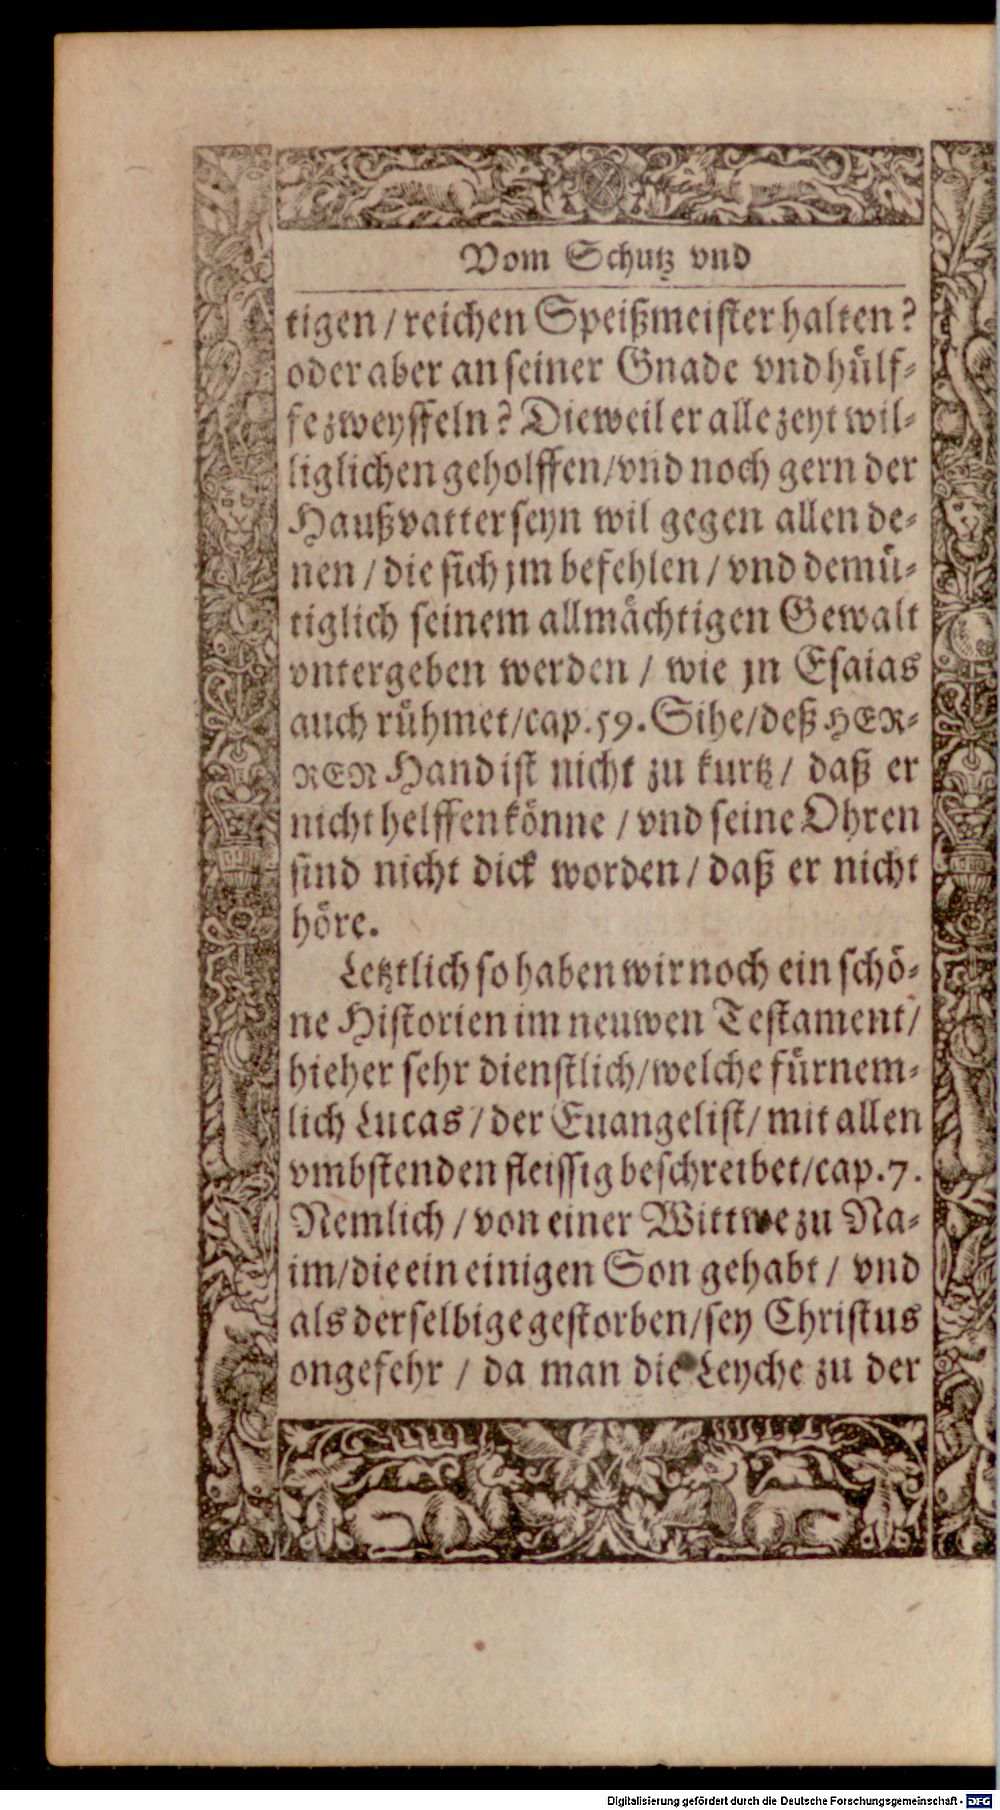 Vom Schutz vnd
tigen / reichen Speißmeister halten?
oder aber an seiner Gnade vnd hülf-
fe zweyffeln? Dieweil er alle zeyt wil-
liglichen geholffen / vnd noch gern der
Haußvatter seyn wil gegen allen de-
nen / die sich jm befehlen / vnd demü-
tiglich seinem allmächtigen Gewalt
vntergeben werden / wie jn Esaias
auch rühmet / cap. 59. Sihe / deß HER-
REN Hand ist nicht zu kurtz / daß er
nicht helffen könne / vnd seine Ohren
sind nicht dick worden / daß er nicht
höre.
Letztlich so haben wir noch ein schö-
ne Historien im neuwen Testament /
hieher sehr dienstlich / welche fürnem-
lich Lucas / der Euangelist / mit allen
vmbstenden fleissig beschreibet / cap. 7.
Nemlich / von einer Wittwe zu Na-
im / die ein einigen Son gehabt / vnd
als derselbige gestorben / sey Christus
ongefehr / da man die Leyche zu der
Digitalisierung gefördert durch die Deutsche Forschungsgemeinschaft - DFG